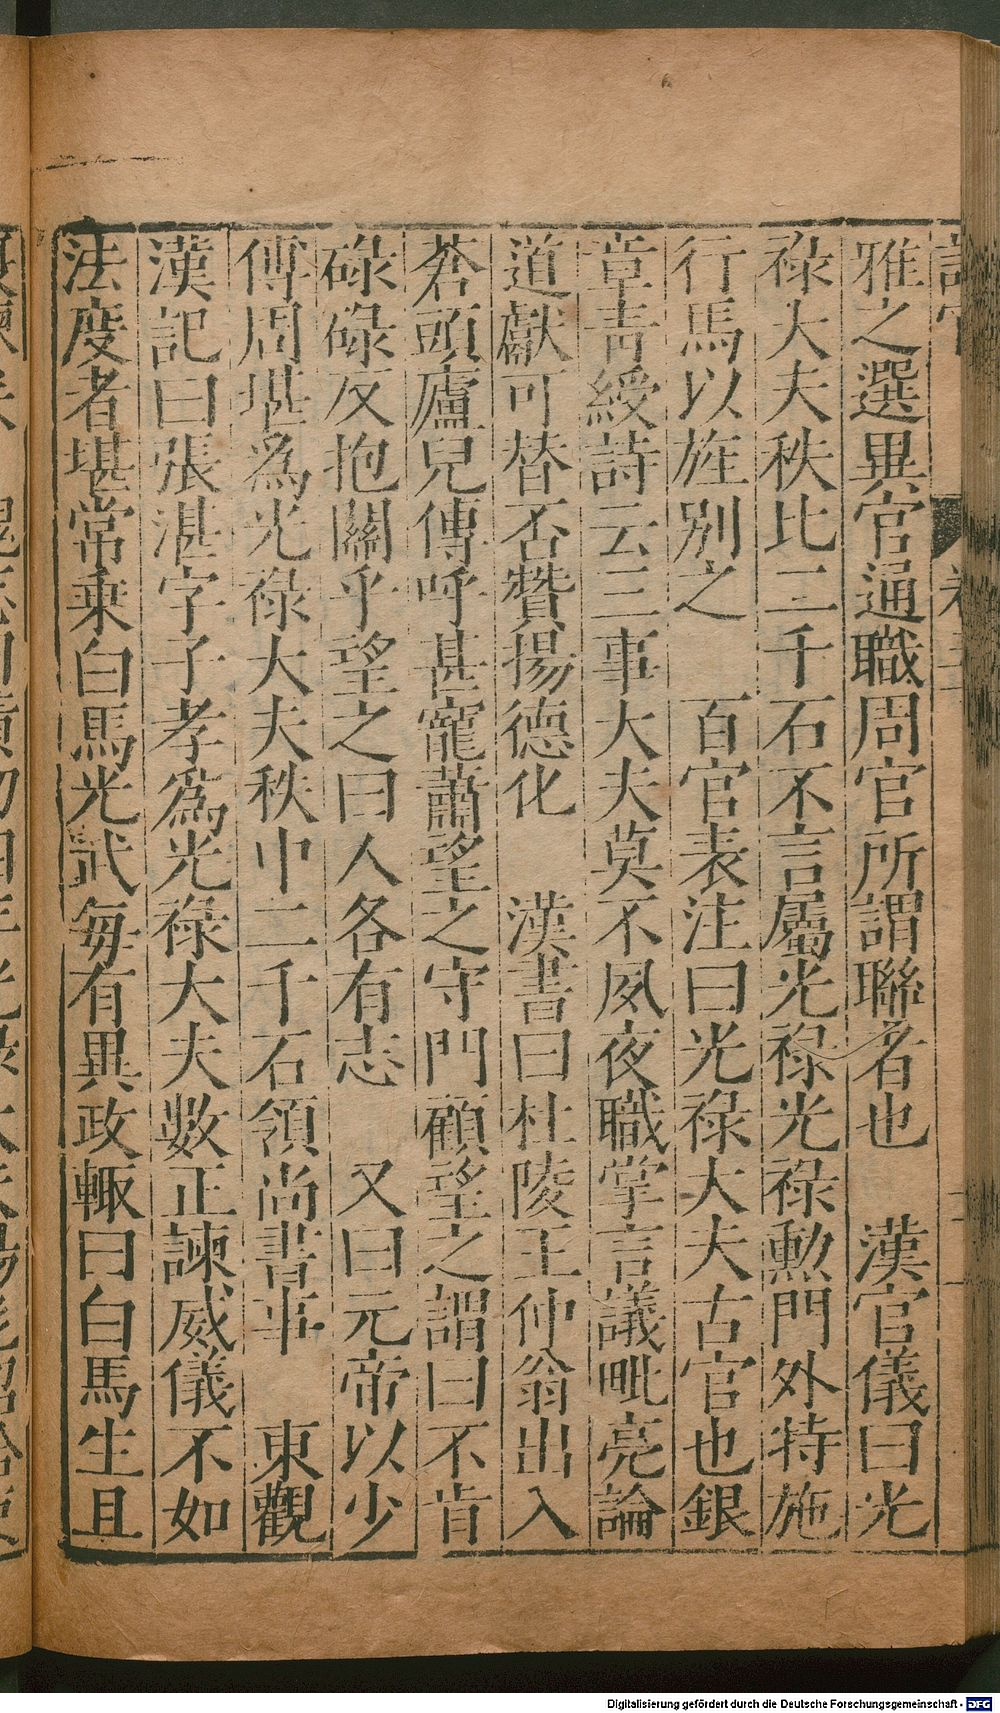 雅之選異官通職周官所謂聯者也　漢官儀曰光
祿大夫秩比二千石不言屬光祿光祿勲門外特施
行馬以旌別之　百官表注曰光祿大夫古官也銀
章青綬詩云三事大夫莫不夙夜職掌言議毗亮論
道獻可替否贊揚德化　漢書曰杜陵王仲翁出入
蒼頭廬兒傳呼甚寵蕭望之守門顧望之謂曰不肯
碌碌反抱關乎望之曰人各有志　又曰元帝以少
傅周堪爲光祿大夫秩中二千石領尚書事　東觀
漢記曰張湛字子孝爲光祿大夫數正諫威儀不如
法度者堪常乘白馬光武每有異政輙曰白馬生且
Digitalisierung gefördert durch die Deutsche Forschungsgemeinschaft - DFG